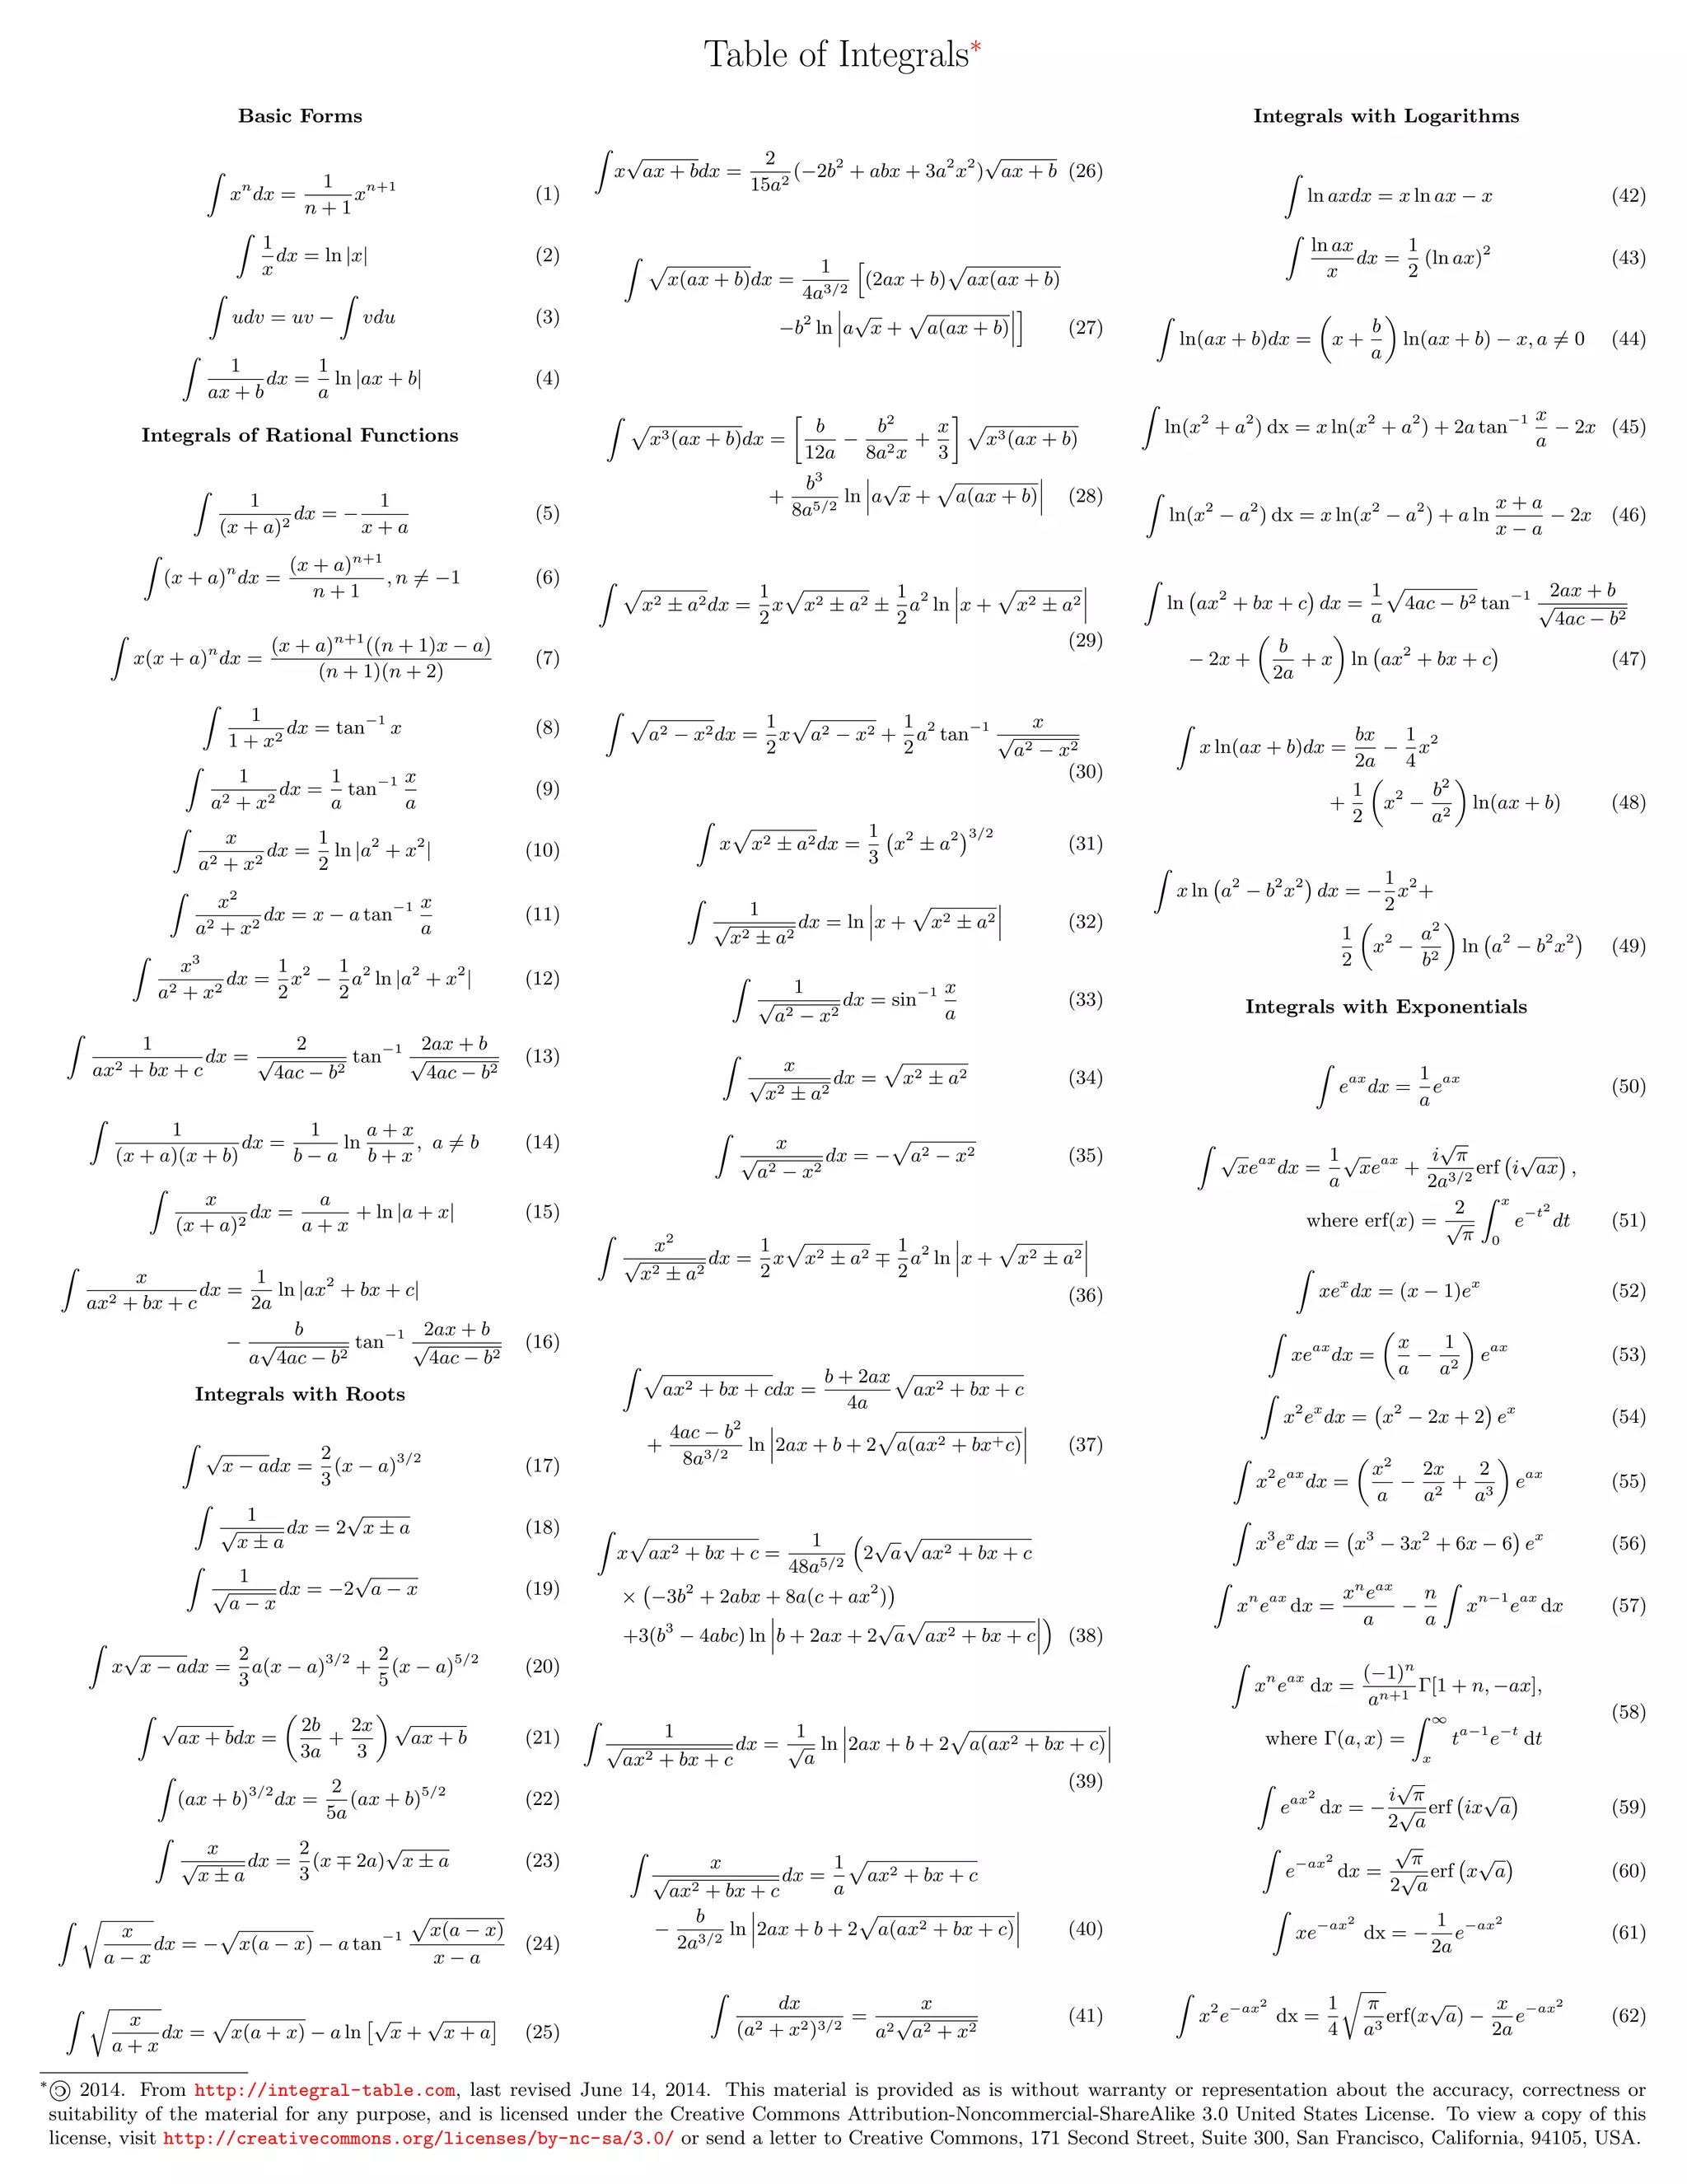 Table of Integrals*
Basic Forms
∫ xⁿdx = 1/(n + 1) xⁿ⁺¹ (1)
∫ 1/x dx = ln |x| (2)
∫ udv = uv − ∫ vdu (3)
∫ 1/(ax + b) dx = 1/a ln |ax + b| (4)
Integrals of Rational Functions
∫ 1/(x + a)² dx = − 1/(x + a) (5)
∫ (x + a)ⁿdx = (x + a)ⁿ⁺¹/(n + 1), n ≠ −1 (6)
∫ x(x + a)ⁿdx = (x + a)ⁿ⁺¹((n + 1)x − a)/((n + 1)(n + 2)) (7)
∫ 1/(1 + x²) dx = tan⁻¹ x (8)
∫ 1/(a² + x²) dx = 1/a tan⁻¹ x/a (9)
∫ x/(a² + x²) dx = 1/2 ln |a² + x²| (10)
∫ x²/(a² + x²) dx = x − a tan⁻¹ x/a (11)
∫ x³/(a² + x²) dx = 1/2 x² − 1/2 a² ln |a² + x²| (12)
∫ 1/(ax² + bx + c) dx = 2/√(4ac − b²) tan⁻¹ (2ax + b)/√(4ac − b²) (13)
∫ 1/((x + a)(x + b)) dx = 1/(b − a) ln (a + x)/(b + x), a ≠ b (14)
∫ x/(x + a)² dx = a/(a + x) + ln |a + x| (15)
∫ x/(ax² + bx + c) dx = 1/(2a) ln |ax² + bx + c|
− b/(a√(4ac − b²)) tan⁻¹ (2ax + b)/√(4ac − b²) (16)
Integrals with Roots
∫ √(x − a)dx = 2/3 (x − a)^(3/2) (17)
∫ 1/√(x ± a) dx = 2√(x ± a) (18)
∫ 1/√(a − x) dx = −2√(a − x) (19)
∫ x√(x − a)dx = 2/3 a(x − a)^(3/2) + 2/5 (x − a)^(5/2) (20)
∫ √(ax + b)dx = (2b/3a + 2x/3) √(ax + b) (21)
∫ (ax + b)^(3/2)dx = 2/(5a) (ax + b)^(5/2) (22)
∫ x/√(x ± a) dx = 2/3 (x ∓ 2a)√(x ± a) (23)
∫ √(x/(a − x)) dx = −√(x(a − x)) − a tan⁻¹ √(x(a − x))/(x − a) (24)
∫ √(x/(a + x)) dx = √(x(a + x)) − a ln [√x + √(x + a)] (25)
∫ x√(ax + b)dx = 2/(15a²) (−2b² + abx + 3a²x²)√(ax + b) (26)
∫ √(x(ax + b))dx = 1/(4a^(3/2)) [(2ax + b)√(ax(ax + b))
−b² ln |a√x + √(a(ax + b))|] (27)
∫ √(x³(ax + b))dx = [b/(12a) − b²/(8a²x) + x/3] √(x³(ax + b))
+ b³/(8a^(5/2)) ln |a√x + √(a(ax + b))| (28)
∫ √(x² ± a²)dx = 1/2 x√(x² ± a²) ± 1/2 a² ln |x + √(x² ± a²)|
(29)
∫ √(a² − x²)dx = 1/2 x√(a² − x²) + 1/2 a² tan⁻¹ x/√(a² − x²)
(30)
∫ x√(x² ± a²)dx = 1/3 (x² ± a²)^(3/2) (31)
∫ 1/√(x² ± a²) dx = ln |x + √(x² ± a²)| (32)
∫ 1/√(a² − x²) dx = sin⁻¹ x/a (33)
∫ x/√(x² ± a²) dx = √(x² ± a²) (34)
∫ x/√(a² − x²) dx = −√(a² − x²) (35)
∫ x²/√(x² ± a²) dx = 1/2 x√(x² ± a²) ∓ 1/2 a² ln |x + √(x² ± a²)|
(36)
∫ √(ax² + bx + c)dx = (b + 2ax)/(4a) √(ax² + bx + c)
+ (4ac − b²)/(8a^(3/2)) ln |2ax + b + 2√(a(ax² + bx⁺c))| (37)
∫ x√(ax² + bx + c) = 1/(48a^(5/2)) (2√a√(ax² + bx + c)
× (−3b² + 2abx + 8a(c + ax²))
+3(b³ − 4abc) ln |b + 2ax + 2√a√(ax² + bx + c)|) (38)
∫ 1/√(ax² + bx + c) dx = 1/√a ln |2ax + b + 2√(a(ax² + bx + c))|
(39)
∫ x/√(ax² + bx + c) dx = 1/a √(ax² + bx + c)
− b/(2a^(3/2)) ln |2ax + b + 2√(a(ax² + bx + c))| (40)
∫ dx/(a² + x²)^(3/2) = x/(a²√(a² + x²)) (41)
Integrals with Logarithms
∫ ln axdx = x ln ax − x (42)
∫ ln ax/x dx = 1/2 (ln ax)² (43)
∫ ln(ax + b)dx = (x + b/a) ln(ax + b) − x, a ≠ 0 (44)
∫ ln(x² + a²) dx = x ln(x² + a²) + 2a tan⁻¹ x/a − 2x (45)
∫ ln(x² − a²) dx = x ln(x² − a²) + a ln (x + a)/(x − a) − 2x (46)
∫ ln (ax² + bx + c) dx = 1/a √(4ac − b²) tan⁻¹ (2ax + b)/√(4ac − b²)
− 2x + (b/2a + x) ln (ax² + bx + c) (47)
∫ x ln(ax + b)dx = bx/2a − 1/4 x²
+ 1/2 (x² − b²/a²) ln(ax + b) (48)
∫ x ln (a² − b²x²) dx = −1/2 x²+
1/2 (x² − a²/b²) ln (a² − b²x²) (49)
Integrals with Exponentials
∫ e^(ax)dx = 1/a e^(ax) (50)
∫ √x e^(ax)dx = 1/a √x e^(ax) + i√π/(2a^(3/2)) erf (i√(ax)),
where erf(x) = 2/√π ∫₀ˣ e^(−t²)dt (51)
∫ xeˣdx = (x − 1)eˣ (52)
∫ xe^(ax)dx = (x/a − 1/a²) e^(ax) (53)
∫ x²eˣdx = (x² − 2x + 2) eˣ (54)
∫ x²e^(ax)dx = (x²/a − 2x/a² + 2/a³) e^(ax) (55)
∫ x³eˣdx = (x³ − 3x² + 6x − 6) eˣ (56)
∫ xⁿe^(ax) dx = xⁿe^(ax)/a − n/a ∫ xⁿ⁻¹e^(ax)dx (57)
∫ xⁿe^(ax) dx = (−1)ⁿ/aⁿ⁺¹ Γ[1 + n, −ax],
(58)
where Γ(a, x) = ∫ₓ^∞ t^(a−1)e^(−t) dt
∫ e^(ax²) dx = − i√π/(2√a) erf (ix√a) (59)
∫ e^(−ax²) dx = √π/(2√a) erf (x√a) (60)
∫ xe^(−ax²) dx = − 1/(2a) e^(−ax²) (61)
∫ x²e^(−ax²) dx = 1/4 √(π/a³) erf(x√a) − x/(2a) e^(−ax²) (62)
*🄯 2014. From http://integral-table.com, last revised June 14, 2014. This material is provided as is without warranty or representation about the accuracy, correctness or
suitability of the material for any purpose, and is licensed under the Creative Commons Attribution-Noncommercial-ShareAlike 3.0 United States License. To view a copy of this
license, visit http://creativecommons.org/licenses/by-nc-sa/3.0/ or send a letter to Creative Commons, 171 Second Street, Suite 300, San Francisco, California, 94105, USA.